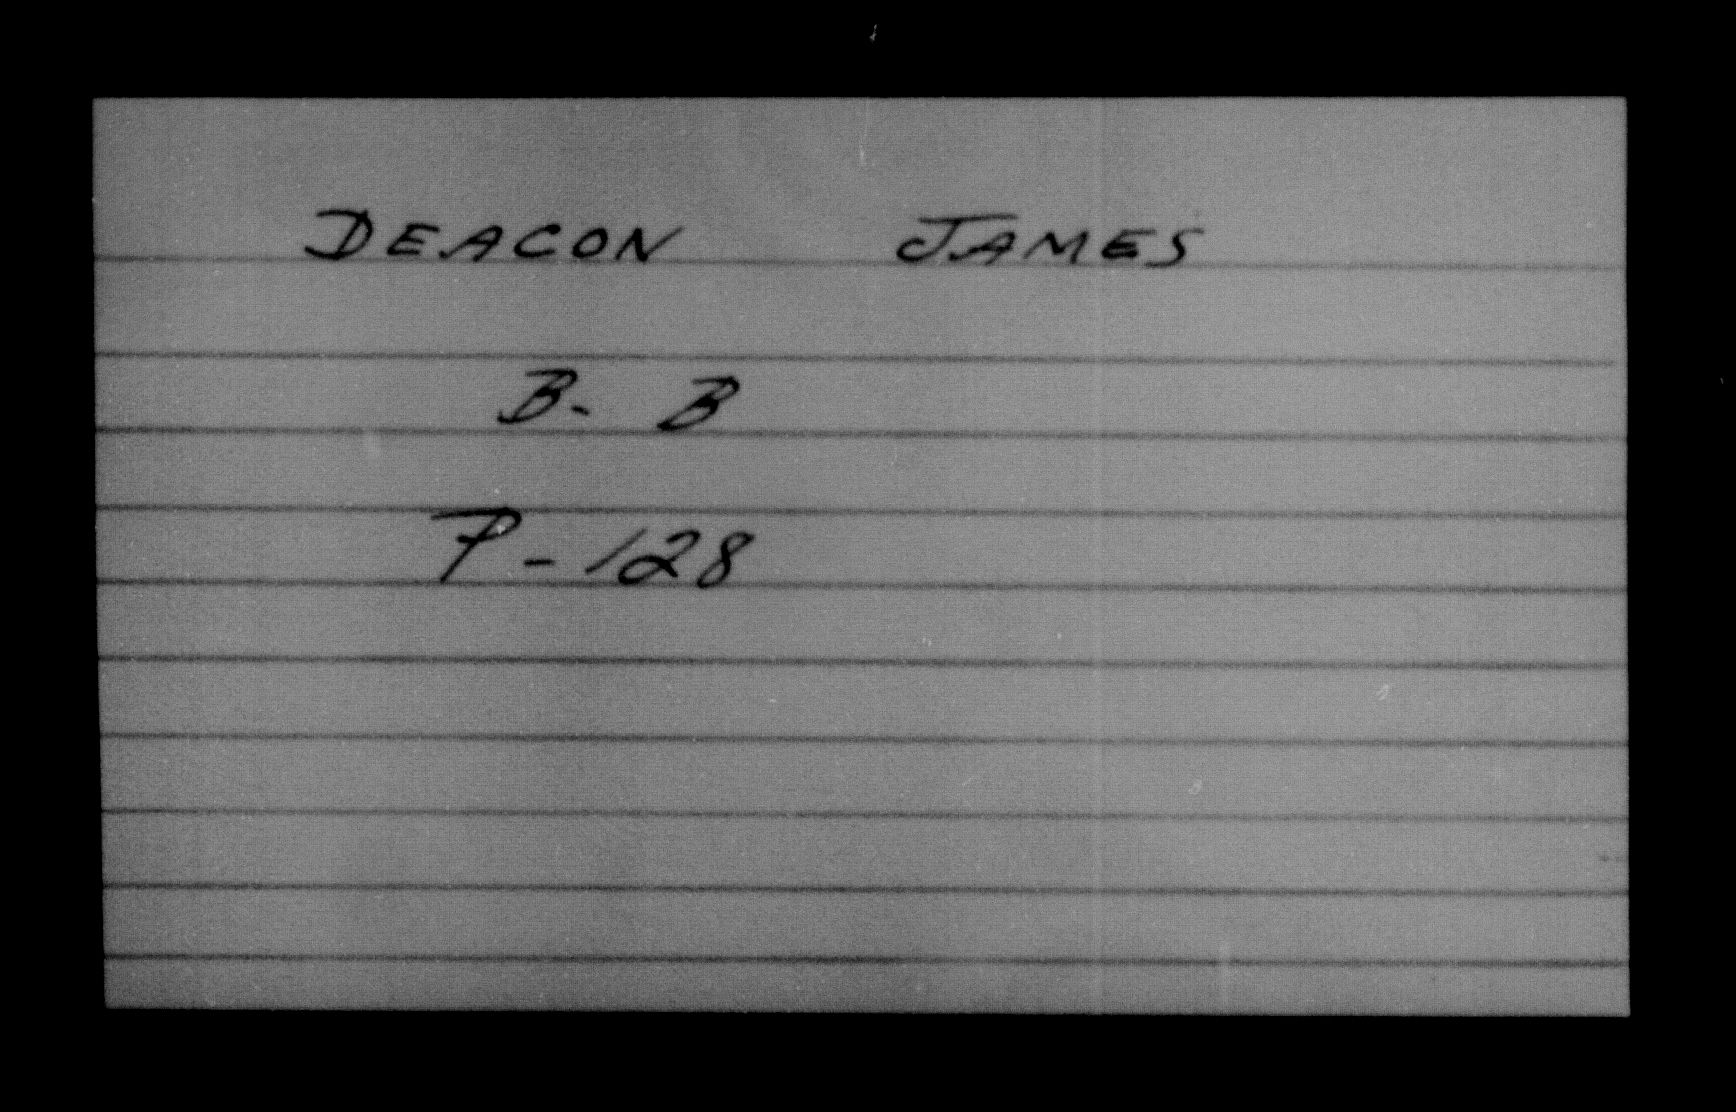 DEACON JAMES
B- B
P-128